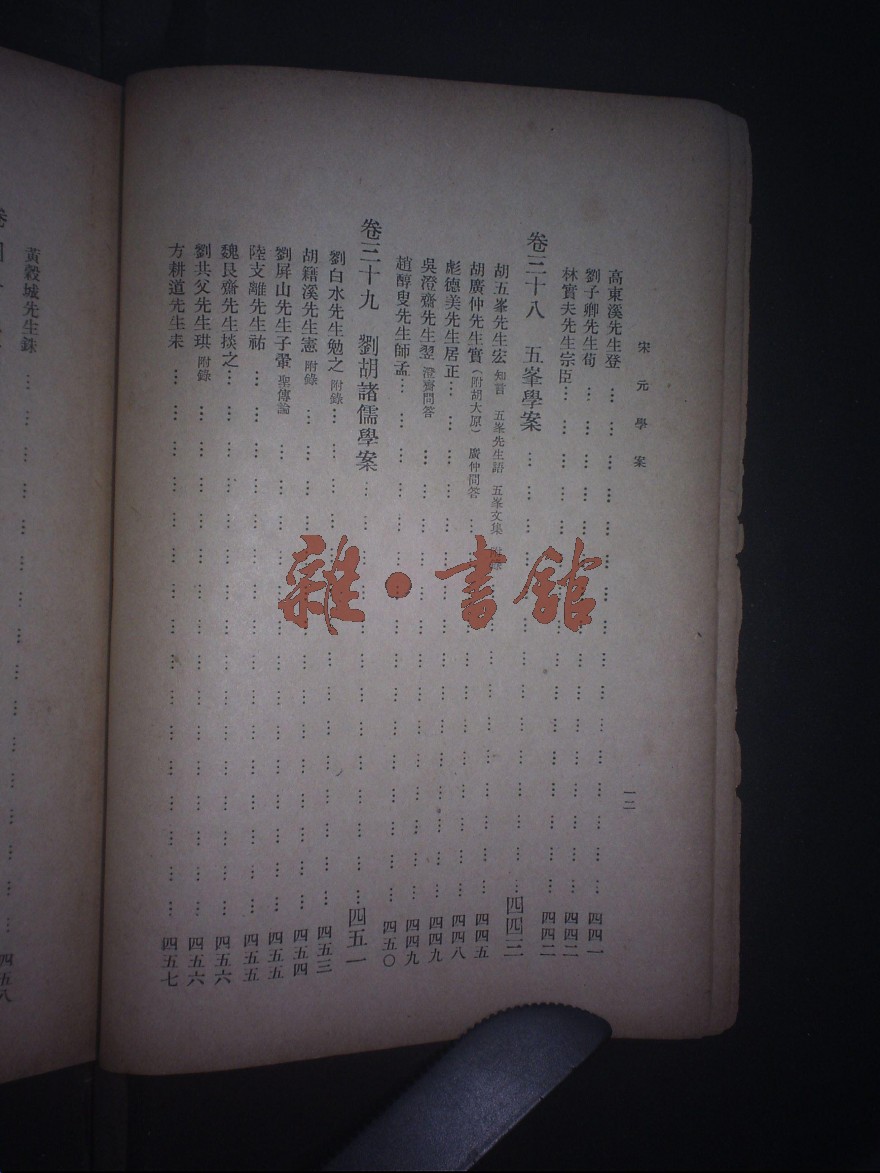 宋元學案
一二
高東溪先生登……四四一
劉子卿先生荀……四四二
林實夫先生宗臣……四四二
卷三十八 五峯學案……四四三
胡五峯先生宏 知言 五峯先生語 五峯文集 附錄……四四五
胡廣仲先生實(附胡大原) 廣仲問答……四四八
彪德美先生居正……四四九
吳澄齋先生翌 澄齋問答……四四九
趙醇叟先生師孟……四五〇
卷三十九 劉胡諸儒學案……四五一
劉白水先生勉之 附錄……四五三
胡籍溪先生憲 附錄……四五四
劉屏山先生子翬 聖傳論……四五五
陸支離先生祐……四五五
魏艮齋先生掞之……四五六
劉共父先生珙 附錄……四五六
方耕道先生耒……四五七
黃穀城先生銖……四五八
雜·書館